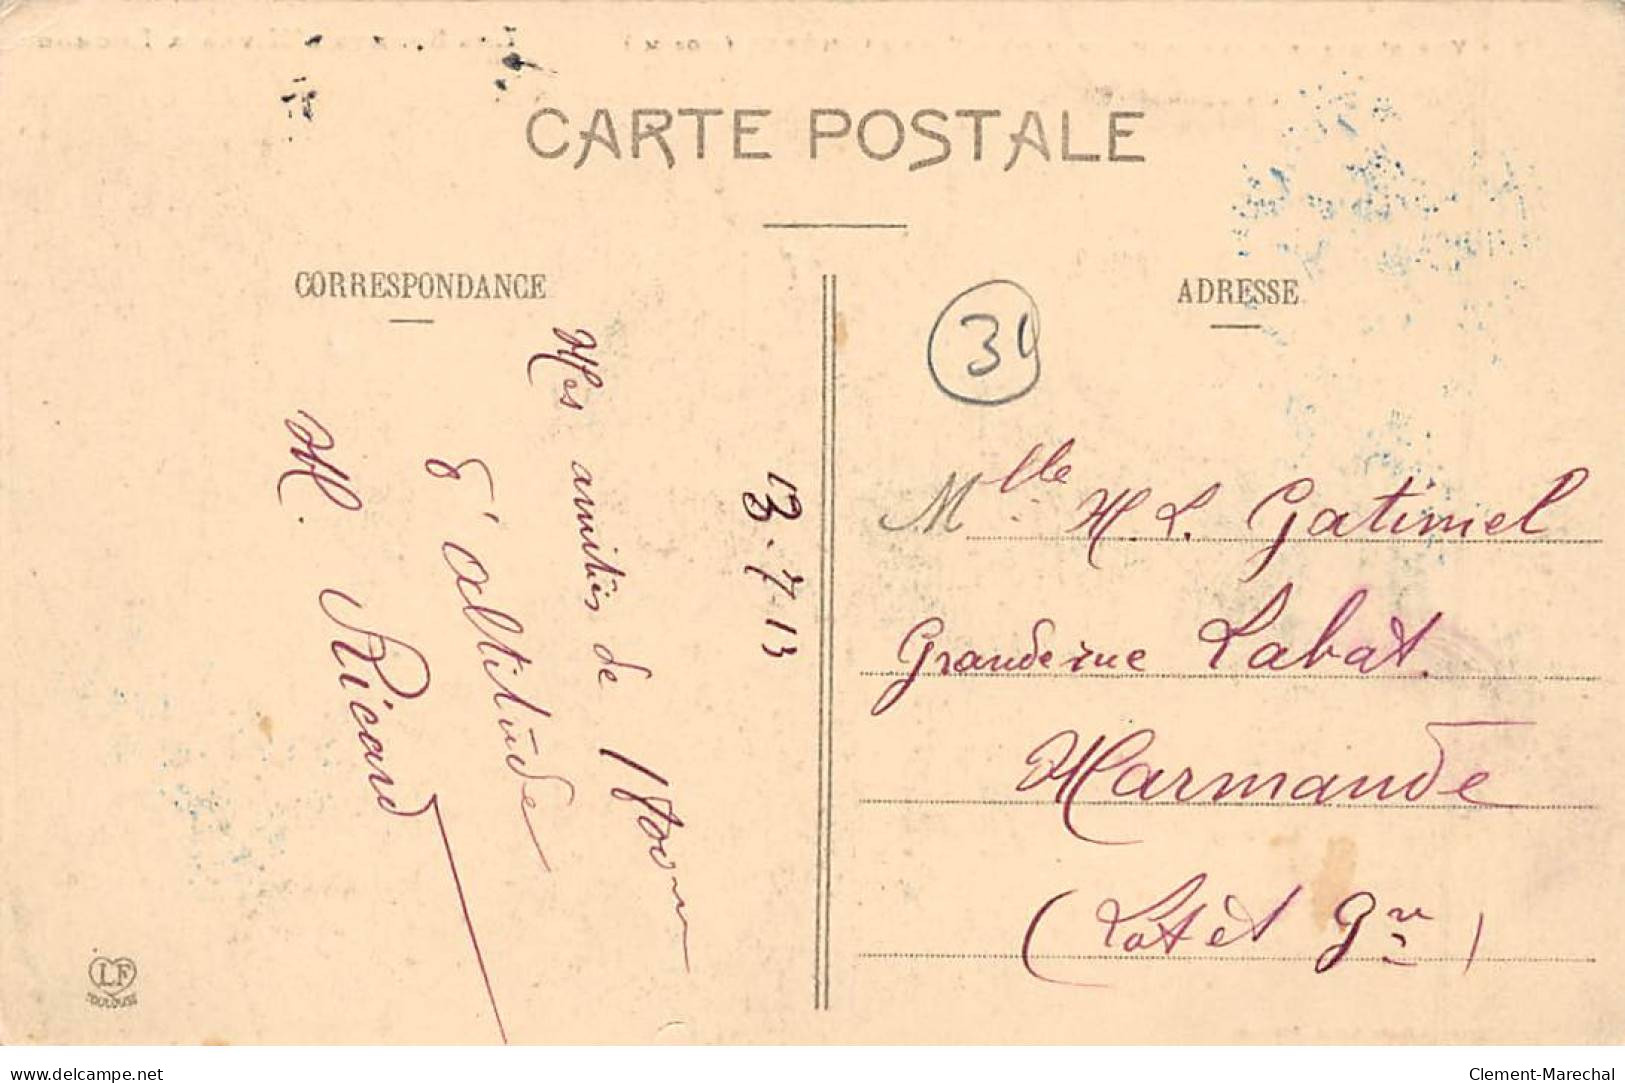 CARTE POSTALE
CORRESPONDANCE
ADRESSE
31
13-7-13
Mes amitiés de 1800 m
d'altitude
M. Ricard
Mlle M. L. Gatimel
Grande rue Labat.
Marmande
(Lot et Gne)
LF
TOULOUSE
delcampe.net
Clement-Marechal